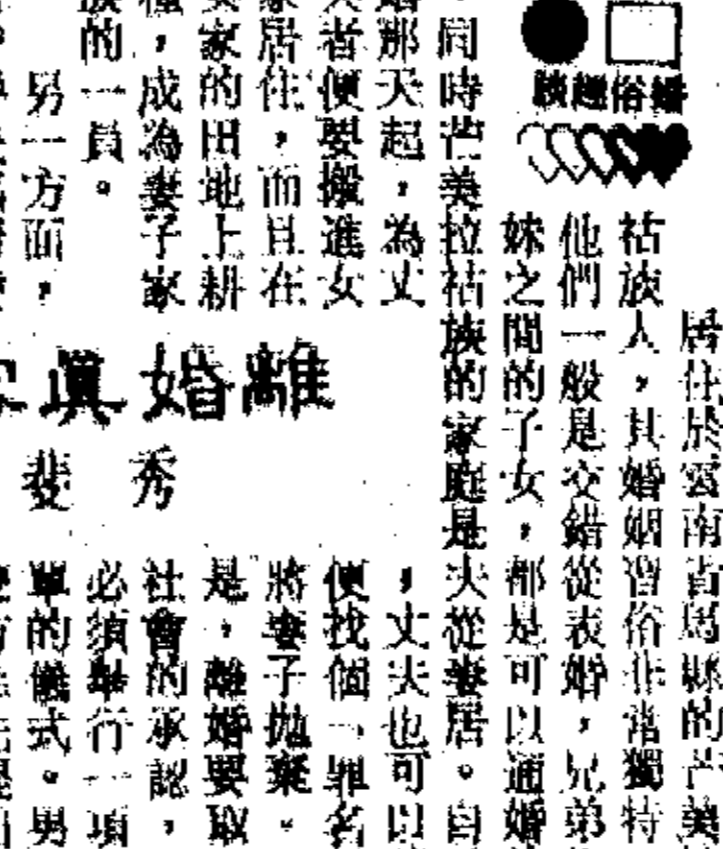 婚俗趣談
居住於雲南省縣的芒美
祜族人，其婚姻習俗非常獨特
他們一般是交錯從表婚，兄弟
妹之間的子女，都是可以通婚
同時芒美拉祜族的家庭是夫從妻居。自
婚那天起，為丈
夫者便要搬進女
家居住，而且在
女家的田地上耕
種，成為妻子家
族的一員。
另一方面，
離婚真
秀斐
，丈夫也可以
便找個「罪名
將妻子拋棄。
是，離婚要取
社會的承認，
必須舉行一項
單的儀式。男